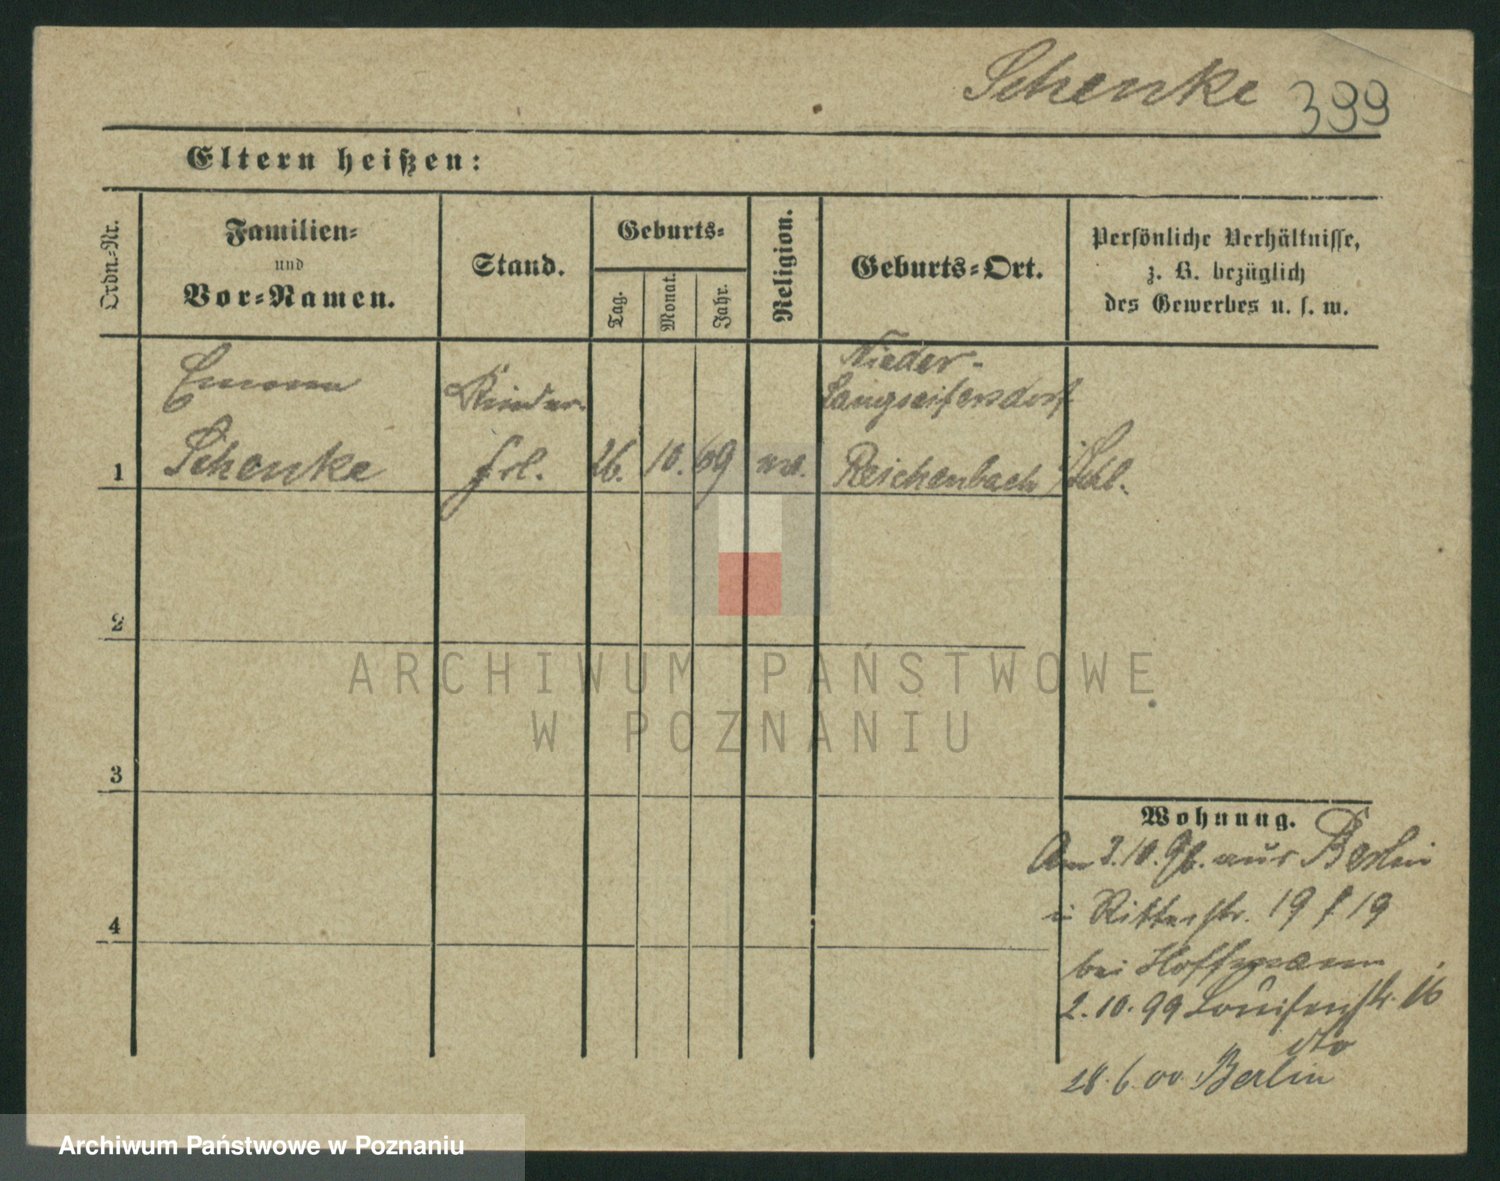 Schenke 399
Eltern heißen:
Ordn.-Nr.
Familien-
und
Vor-Namen.
Stand.
Geburts-
Tag.
Monat.
Jahr.
Religion.
Geburts-Ort.
Persönliche Verhältnisse,
z. B. bezüglich
des Gewerbes u. s. w.
Emma
Schenke
Kinder-
frl.
26.
10.
69
ev.
Nieder-
Langseifersdorf
Reichenbach /Schl.
1
2
3
4
Wohnung.
Am 2.10.96. aus Berlin
in Ritterstr. 19 / 19
bei Hoffmann
2.10.99 Louisenstr. 16
dto
28.6.00 Berlin
ARCHIWUM PAŃSTWOWE
W POZNANIU
Archiwum Państwowe w Poznaniu